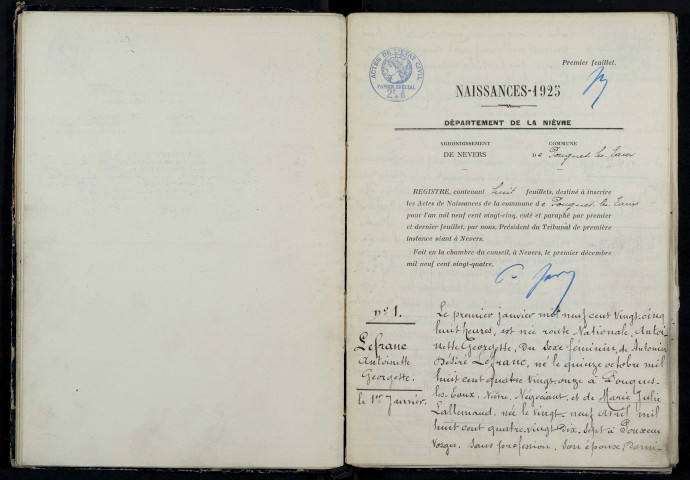 Premier feuillet.
ACTES DE L'ETAT CIVIL
PAPIER SPECIAL
NAISSANCES-1925
DÉPARTEMENT DE LA NIÈVRE
ARRONDISSEMENT
DE NEVERS
COMMUNE
De Pougues les Eaux
REGISTRE, contenant huit feuillets, destiné à inscrire
les Actes de Naissances de la commune de Pougues les Eaux
pour l'an mil neuf cent vingt-cinq, coté et paraphé par premier
et dernier feuillet, par nous, Président du Tribunal de première
instance séant à Nevers.
Fait en la chambre du conseil, à Nevers, le premier décembre
mil neuf cent vingt-quatre.
n° 1.
Lefranc
Antoinette
Georgette.
le 1er Janvier.
Le premier janvier mil neuf cent vingt-cinq
huit heures, est née route Nationale, Antoi-
nette Georgette, du sexe féminin, de Antonin
Désiré Lefranc, né le quinze octobre mil
huit cent quatre vingt-onze à Pougues-
les-Eaux, Nièvre, Négociant, et de Marie Julie
Lallemand, née le vingt-neuf Avril mil
huit cent quatre-vingt dix-sept à Pouxeux
Vosges. Sans profession, son épouse, Domi-